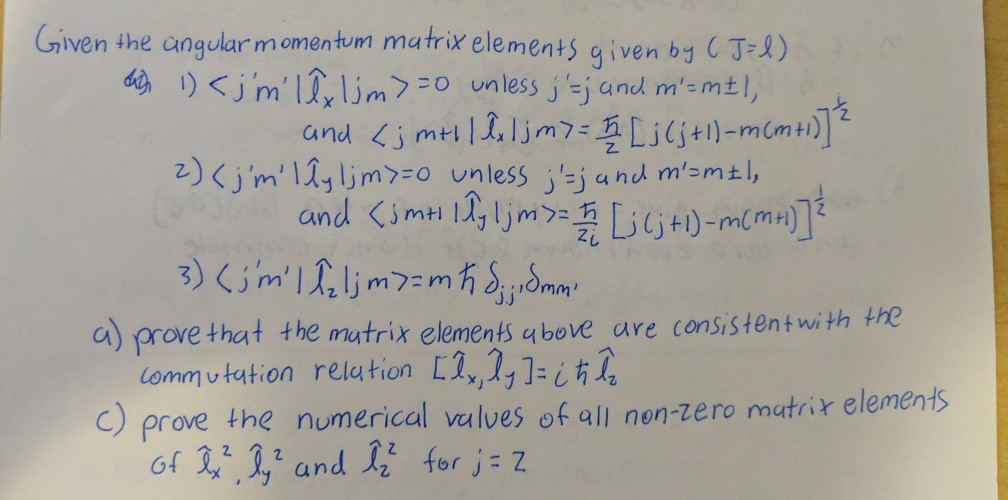 Given the angular momentum matrix elements given by (J=l)
1) <j'm'|l̂ₓ|jm>=0 unless j'=j and m'=m±1,
and <j m+1|l̂ₓ|jm>= ħ/2 [j(j+1)-m(m+1)]^½
2) <j'm'|l̂y|jm>=0 unless j'=j and m'=m±1,
and <jm+1|l̂y|jm>= ħ/2i [j(j+1)-m(m+1)]^½
3) <j'm'|l̂z|jm>=mħ δjj' δmm'
a) prove that the matrix elements above are consistent with the
commutation relation [l̂ₓ,l̂y]=iħ l̂z
c) prove the numerical values of all non-zero matrix elements
of l̂ₓ², l̂y² and l̂z² for j=2